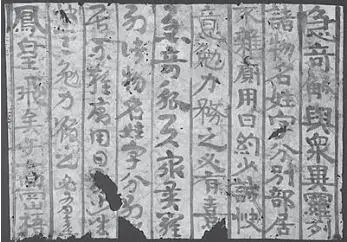 急奇觚與衆異羅列
諸物名姓字分別部居
不雜廁用日約少誠快
意勉力務之必有喜
急奇觚与衆異羅
列諸物名姓字分別
不雜廁用日
勉力務之必有
鳳皇飛矣于高梧